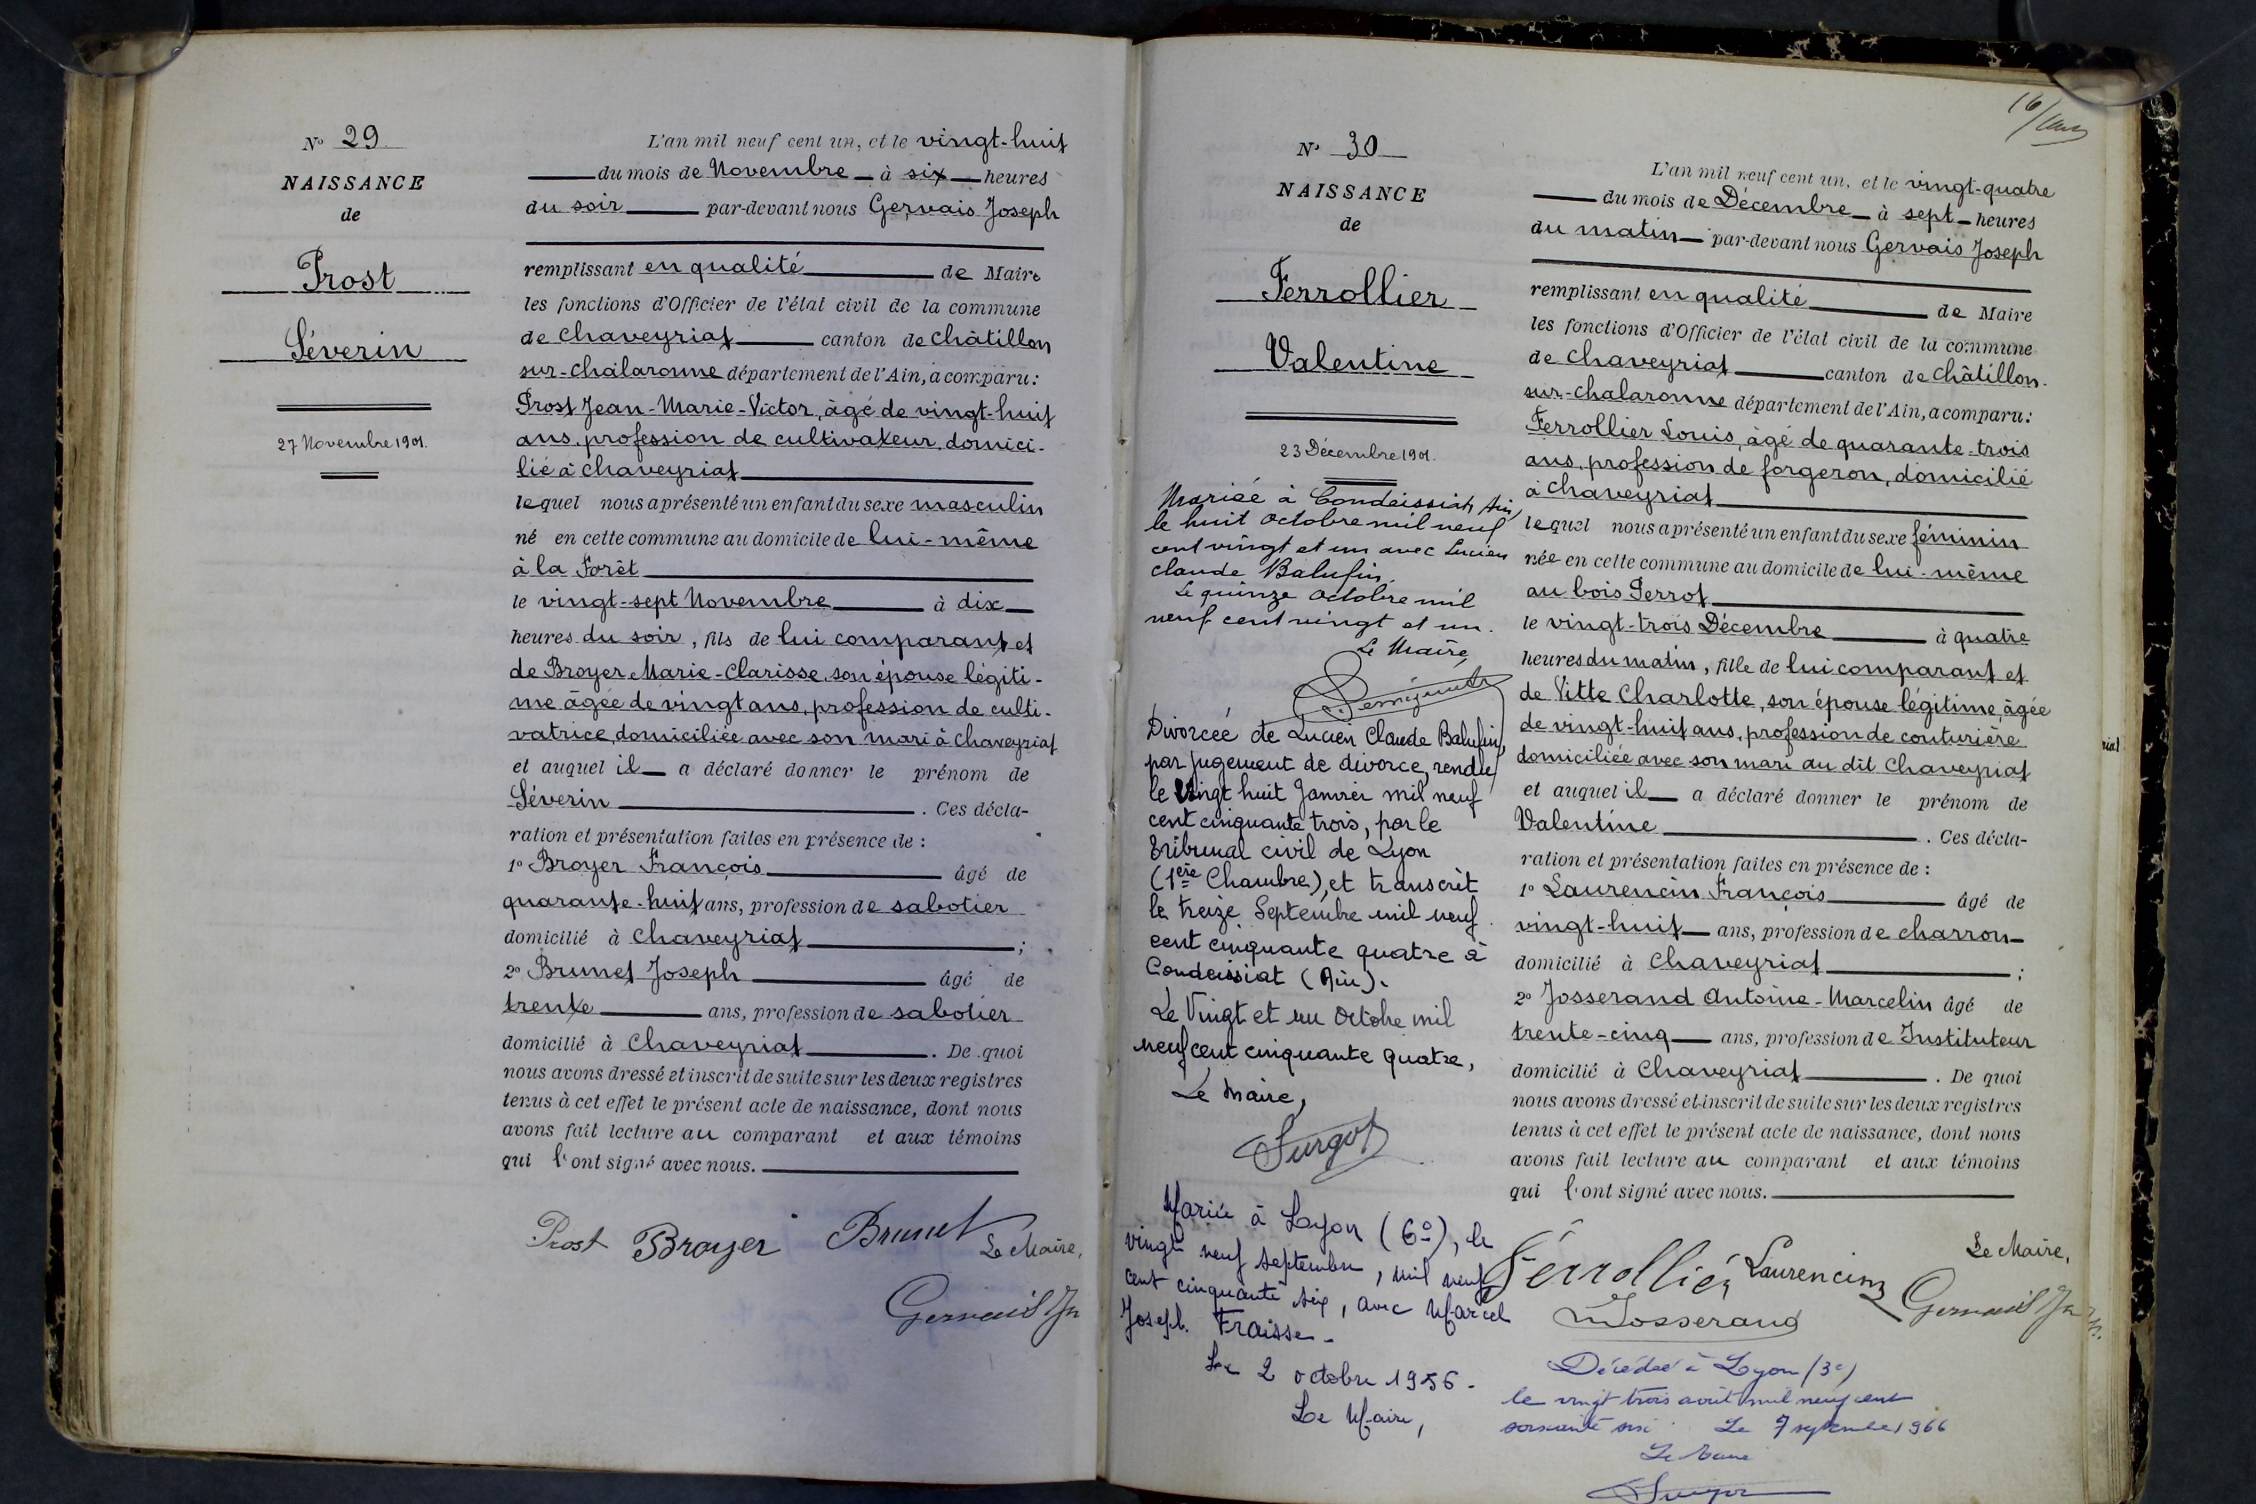 N° 29
NAISSANCE
de
Prost
Séverin
27 Novembre 1901.
L'an mil neuf cent un, et le vingt-huit
du mois de Novembre à six heures
du soir par-devant nous Gervais Joseph
remplissant en qualité de Maire
les fonctions d'Officier de l'état civil de la commune
de Chaveyriat canton de Châtillon
sur-Chalaronne département de l'Ain, a comparu :
Prost Jean-Marie-Victor, âgé de vingt-huit
ans, profession de cultivateur, domici-
lié à Chaveyriat
lequel nous a présenté un enfant du sexe masculin
né en cette commune au domicile de lui-même
à la Forêt
le vingt-sept Novembre à dix
heures du soir, fils de lui comparant et
de Broyer Marie-Clarisse, son épouse légiti-
me âgée de vingt ans, profession de culti-
vatrice, domiciliée avec son mari à Chaveyriat
et auquel il a déclaré donner le prénom de
Séverin . Ces décla-
ration et présentation faites en présence de :
1° Broyer François âgé de
quarante-huit ans, profession de sabotier
domicilié à Chaveyriat ;
2° Brunet Joseph âgé de
trente ans, profession de sabotier
domicilié à Chaveyriat . De quoi
nous avons dressé et inscrit de suite sur les deux registres
tenus à cet effet le présent acte de naissance, dont nous
avons fait lecture au comparant et aux témoins
qui l'ont signé avec nous.
Prost Broyer Brunet Le Maire,
Gervais Jh
16/
N° 30
NAISSANCE
de
Ferrollier
Valentine
23 Décembre 1901.
Mariée à Condeissiat, Ain,
le huit octobre mil neuf
cent vingt et un avec Lucien
Claude Balufin.
Le quinze octobre mil
neuf cent vingt et un.
Le Maire,
Divorcée de Lucien Claude Balufin,
par jugement de divorce, rendu
le Vingt huit Janvier mil neuf
cent cinquante trois, par le
Tribunal civil de Lyon
(1ère Chambre), et transcrit
le treize Septembre mil neuf
cent cinquante quatre à
Condeissiat (Ain).
Le Vingt et un Octobre mil
neuf cent cinquante quatre,
Le Maire,
Surgot
Mariée à Lyon (6°), le
vingt neuf septembre, mil neuf
cent cinquante six, avec Marcel
Joseph Fraisse -
Le 2 octobre 1956.
Le Maire,
L'an mil neuf cent un, et le vingt-quatre
du mois de Décembre à sept heures
du matin par-devant nous Gervais Joseph
remplissant en qualité de Maire
les fonctions d'Officier de l'état civil de la commune
de Chaveyriat canton de Châtillon-
sur-Chalaronne département de l'Ain, a comparu :
Ferrollier Louis, âgé de quarante-trois
ans, profession de forgeron, domicilié
à Chaveyriat
lequel nous a présenté un enfant du sexe féminin
née en cette commune au domicile de lui-même
au bois Perrot
le vingt-trois Décembre à quatre
heures du matin, fille de lui comparant et
de Vitte Charlotte, son épouse légitime, âgée
de vingt-huit ans, profession de couturière
domiciliée avec son mari au dit Chaveyriat
et auquel il a déclaré donner le prénom de
Valentine . Ces décla-
ration et présentation faites en présence de :
1° Laurencin François âgé de
vingt-huit ans, profession de charron
domicilié à Chaveyriat ;
2° Josserand Antoine-Marcelin âgé de
trente-cinq ans, profession de Instituteur
domicilié à Chaveyriat . De quoi
nous avons dressé et inscrit de suite sur les deux registres
tenus à cet effet le présent acte de naissance, dont nous
avons fait lecture au comparant et aux témoins
qui l'ont signé avec nous.
Le Maire,
Ferrollier Laurencin Gervais Jh
Josserand
Décédée à Lyon (3e)
le vingt trois août mil neuf cent
soixante six Le 7 septembre 1966
Le Maire
Surgot